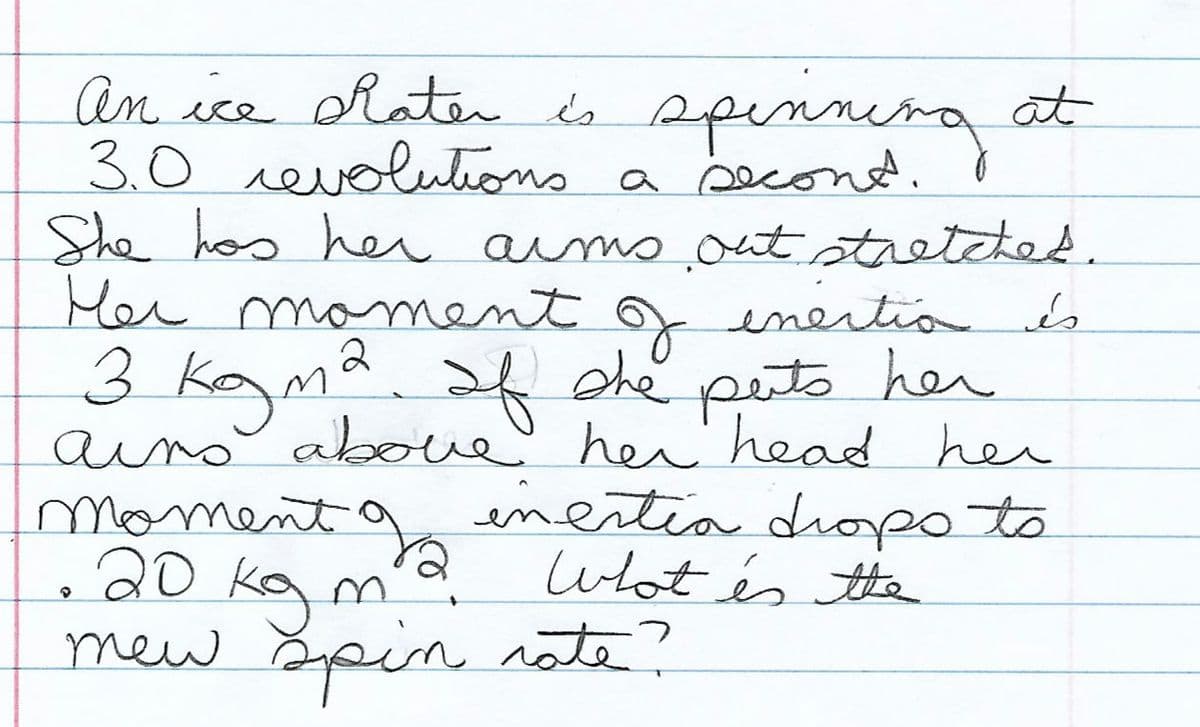 An ice skater is spinning at
3.0 revolutions a second.
She has her arms out stretched.
Her moment of inertia is
3 kg m². If she puts her
arms above her head her
moment of inertia drops to
.20 kg m². What is the
new spin rate?